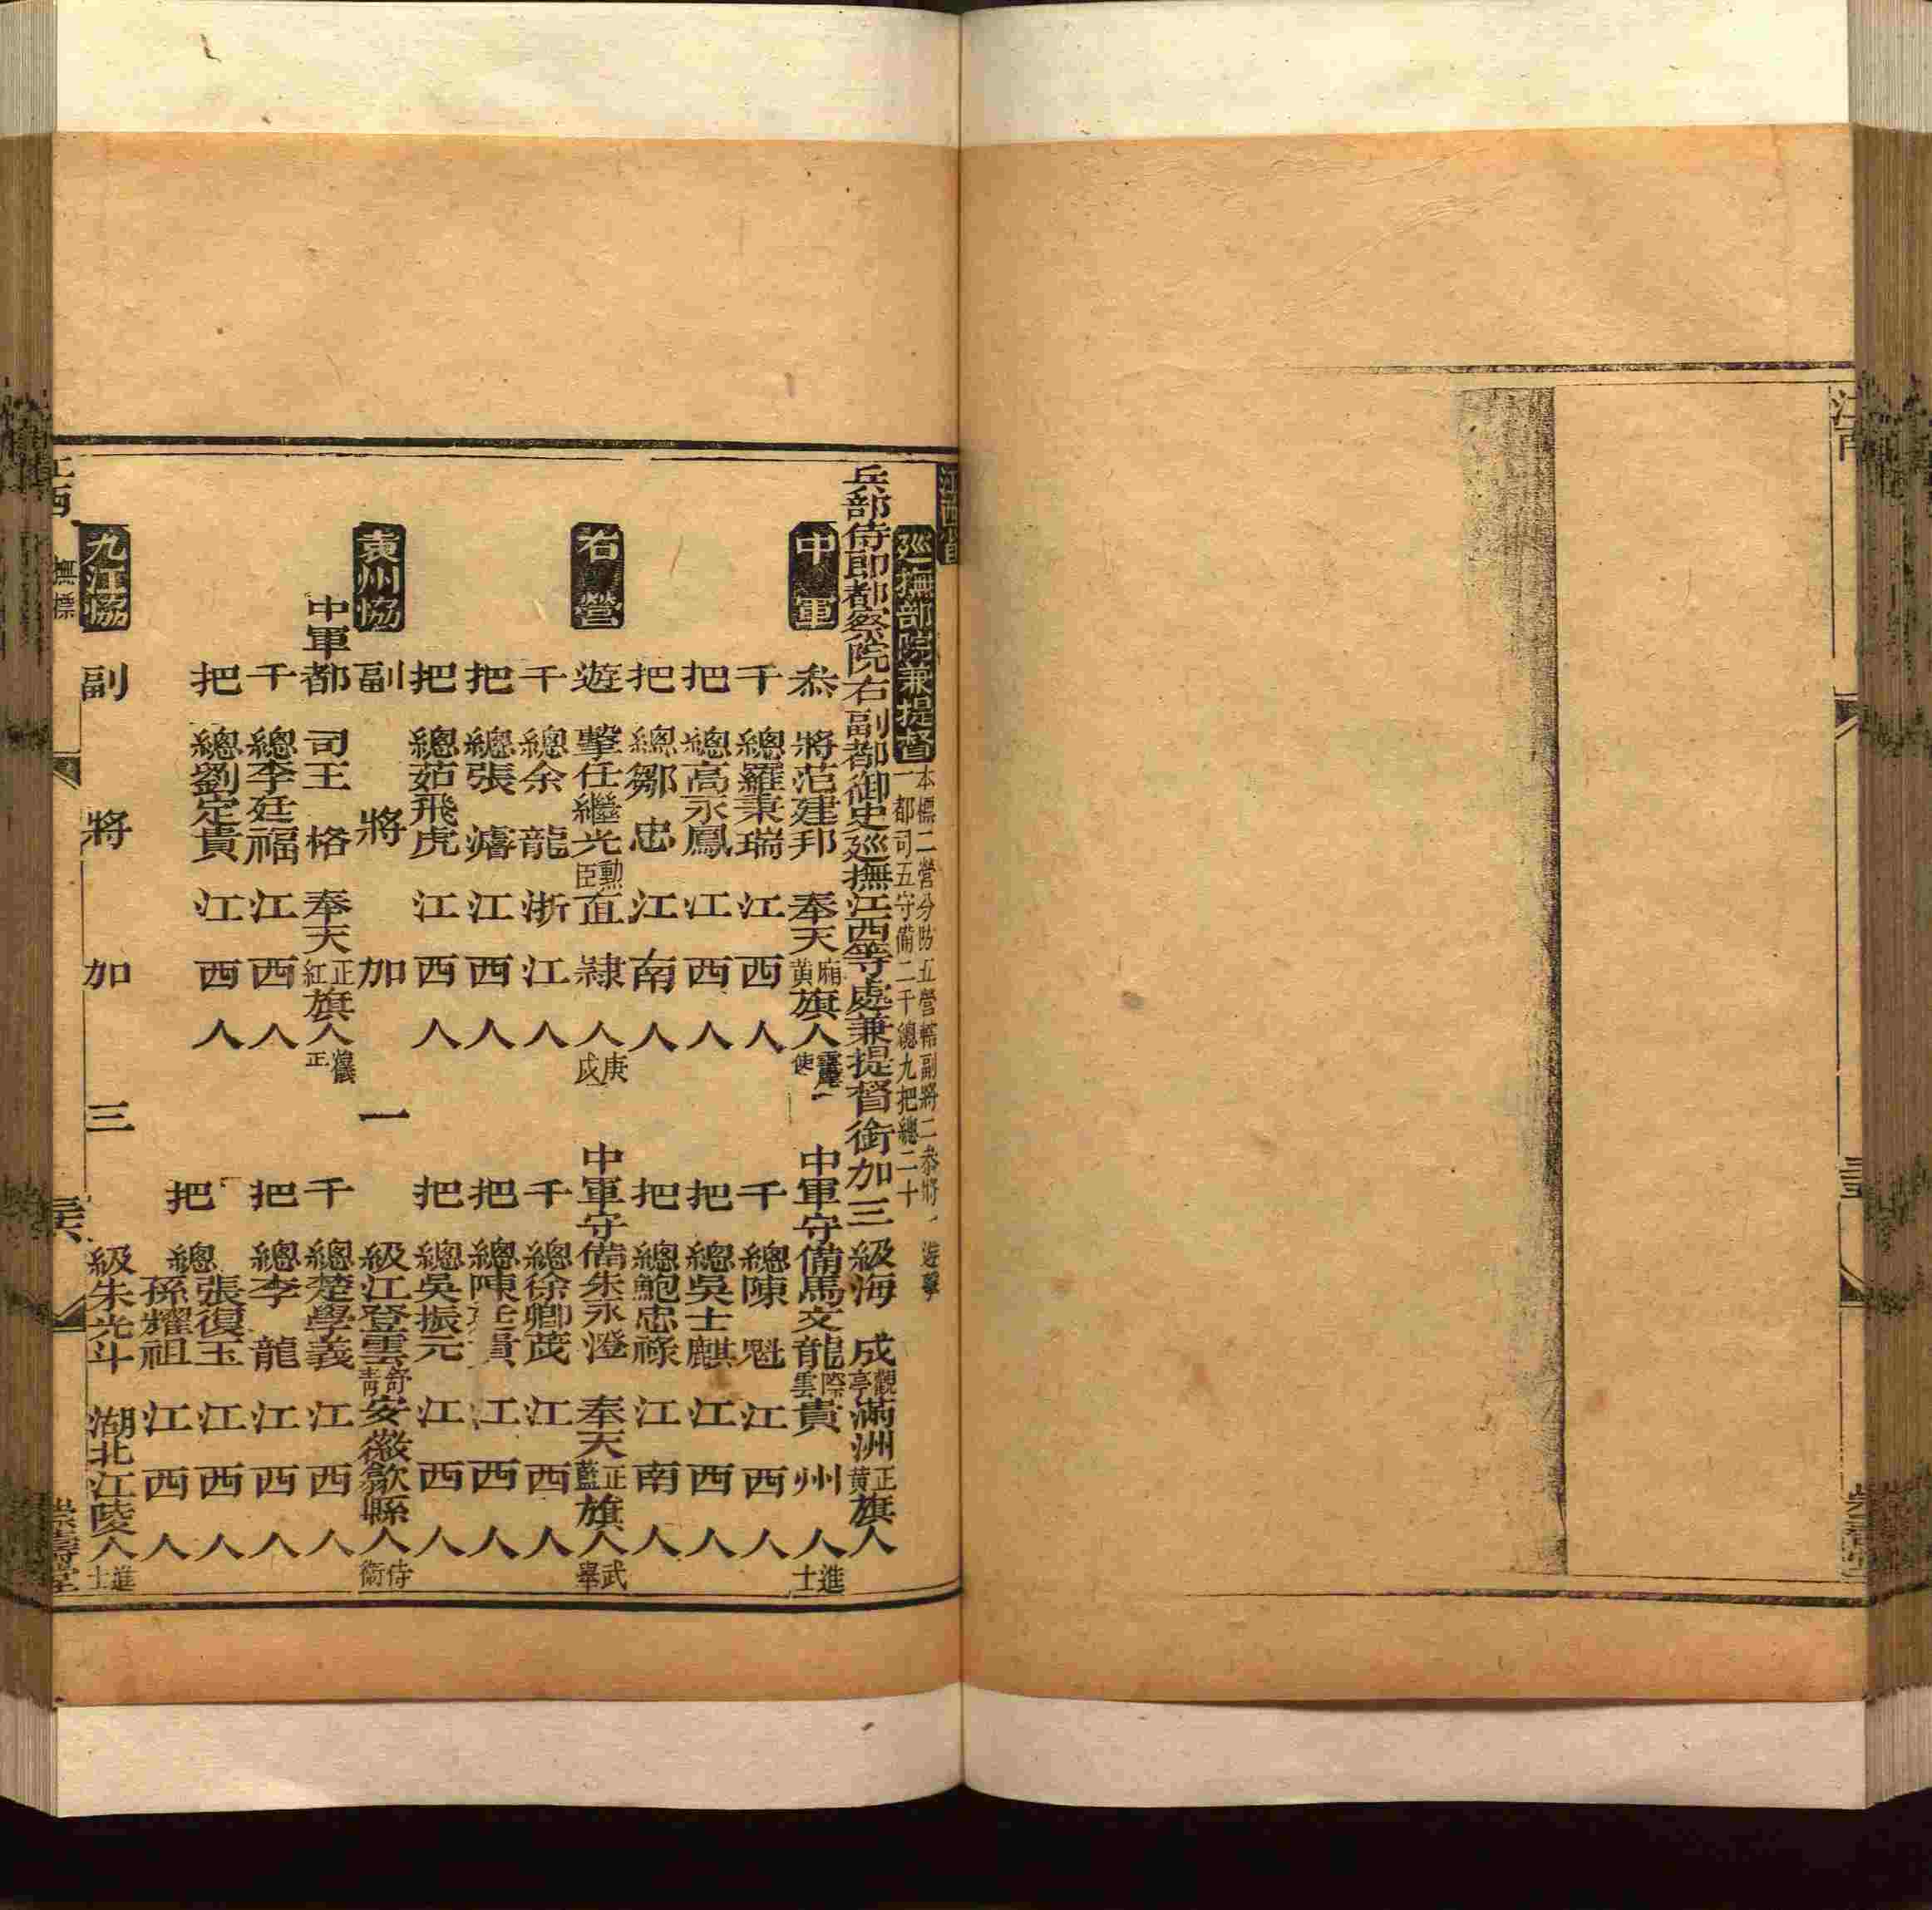 江西省
廵撫部院兼提督
本標二營分防五營轄副將二叅將一遊擊
一都司五守備二千總九把總二十
兵部侍郎都察院右副都御史廵撫江西等處兼提督銜加三級海成觀亭滿洲正黃旗人
中軍
叅將范建邦奉天廂黃旗人雲麾使
中軍守備馬文龍際雲貴州人進士
千總羅秉瑞江西人
千總陳魁江西人
把總高永鳳江西人
把總吳士麒江西人
把總鄒忠江南人
把總鮑忠祿江南人
右營
遊擊任繼光勳臣直隸人庚戌
中軍守備朱永澄奉天正藍旗人武舉
千總余龍浙江人
千總徐卿茂江西人
把總張濬江西人
把總陳貴江西人
把總茹飛虎江西人
把總吳振元江西人
袁州協
副將加一級江登雲舒青安徽歙縣人侍衛
中軍都司王格奉天正紅旗人儀正
千總楚學義江西人
千總李廷福江西人
把總李龍江西人
把總劉定貴江西人
把總張復玉江西人
孫耀祖江西人
九江協
副將加三級朱光斗湖北江陵人進士
江西
撫標
崇壽堂
江南